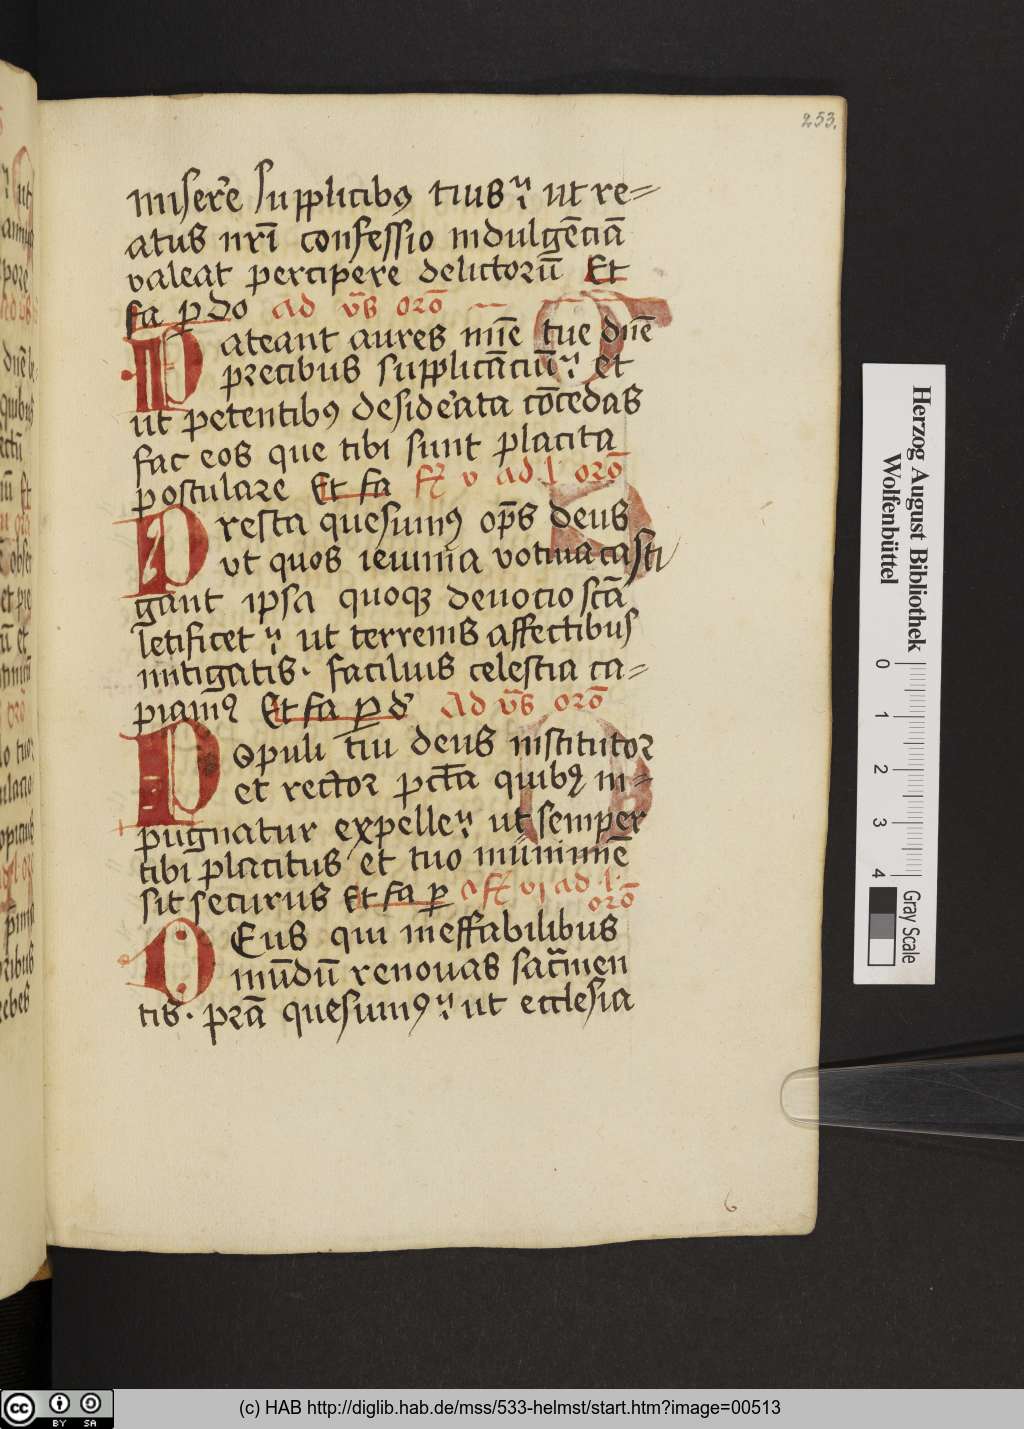 253.
miser̄e supplicibꝰ tuis ut re=
atus nr̄i confessio indulgēciā
valeat percipere delictorū Et
fa ꝑ do ad v̄s orō
Pateant aures mīe tue dn̄e
precibus supplicāciū et
ut petentibꝰ desid'ata cōcedas
fac eos que tibi sunt placita
postulare Et fa fr̄ v ad l orō
Presta quesumꝰ op̄s deus
vt quos ieiunia votiua casti
gant ipsa quoqꝫ deuocio scā
letificet ut terrenis affectibus
mitigatis. facilius celestia ca=
piamꝰ Et fa ꝑ d' Ad v̄s orō
Populi tui deus institutor
et rector pcta quibꝰ in=
pugnatur expelle ut semper
tibi placitus et tuo munimīe
sit securus Et fa ꝑ fr̄ vj ad l.
orō
Deus qui ineffabilibus
mūdū renouas sacrmen
tis. prā quesumꝰ ut ecclesia
6
Herzog August Bibliothek
Wolfenbüttel
0 1 2 3 4
Gray Scale
cc BY SA
(c) HAB http://diglib.hab.de/mss/533-helmst/start.htm?image=00513